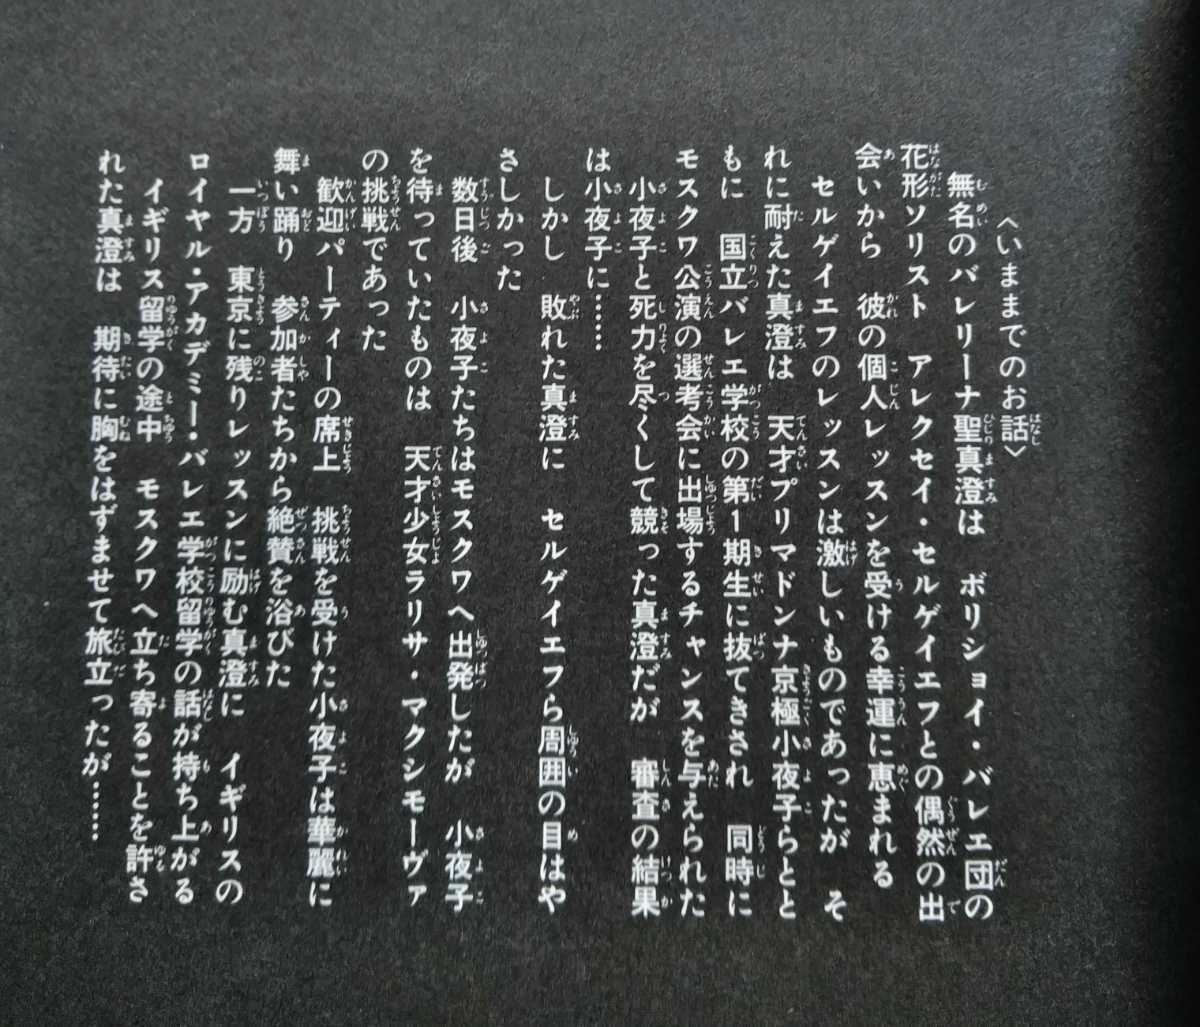 〈いままでのお話〉
無名のバレリーナ聖真澄は　ボリショイ・バレエ団の
花形ソリスト　アレクセイ・セルゲイエフとの偶然の出
会いから　彼の個人レッスンを受ける幸運に恵まれる
セルゲイエフのレッスンは激しいものであったが　そ
れに耐えた真澄は　天才プリマドンナ京極小夜子らとと
もに　国立バレエ学校の第1期生に抜てきされ　同時に
モスクワ公演の選考会に出場するチャンスを与えられた
小夜子と死力を尽くして競った真澄だが　審査の結果
は小夜子に……
しかし　敗れた真澄に　セルゲイエフら周囲の目はや
さしかった
数日後　小夜子たちはモスクワへ出発したが　小夜子
を待っていたものは　天才少女ラリサ・マクシモーヴァ
の挑戦であった
歓迎パーティーの席上　挑戦を受けた小夜子は華麗に
舞い踊り　参加者たちから絶賛を浴びた
一方　東京に残りレッスンに励む真澄に　イギリスの
ロイヤル・アカデミー・バレエ学校留学の話が持ち上がる
イギリス留学の途中　モスクワへ立ち寄ることを許さ
れた真澄は　期待に胸をはずませて旅立ったが……